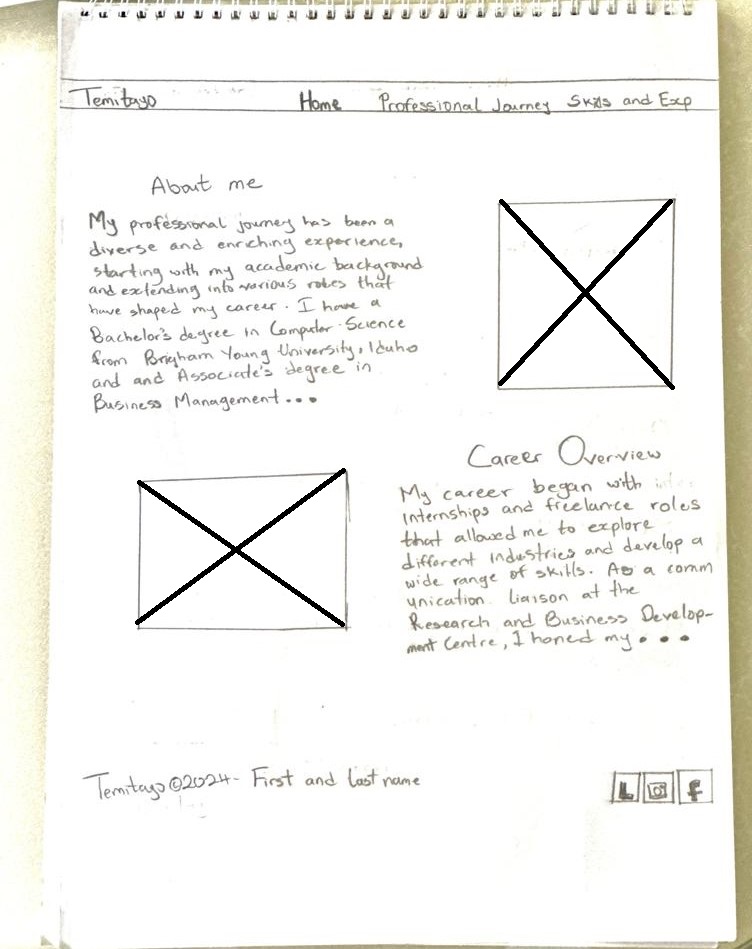 Temitayo Home Professional Journey Skills and Exp
About me
My professional journey has been a
diverse and enriching experience,
starting with my academic background
and extending into various roles that
have shaped my career. I have a
Bachelor's degree in Computer Science
from Brigham Young University, Idaho
and and Associate's degree in
Business Management...
Career Overview
My career began with inter
internships and freelance roles
that allowed me to explore
different industries and develop a
wide range of skills. As a comm
unication liaison at the
Research and Business Develop-
ment Centre, I honed my...
Temitayo©2024- First and Last name
L f